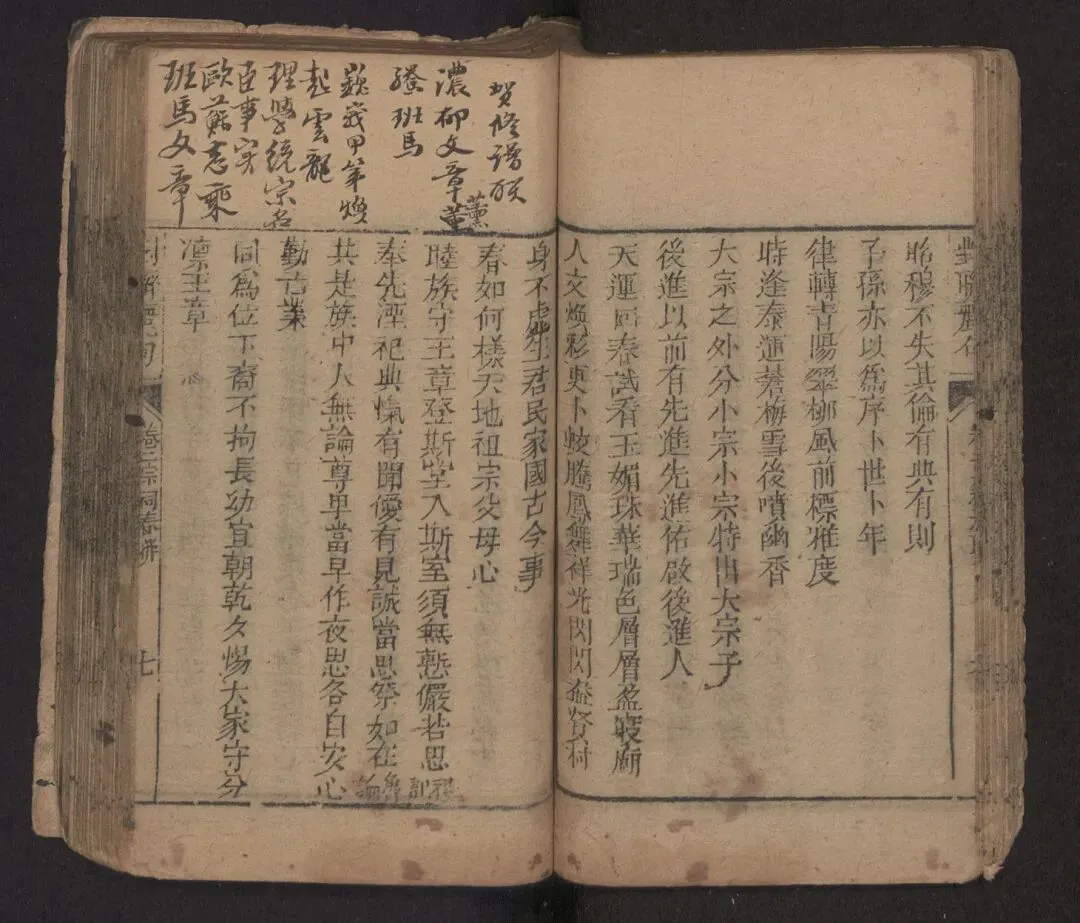 昭穆不失其倫有典有則
子孫亦以為序卜世卜年
律轉青陽翠柳風前標雅度
時逢泰運蒼梅雪後噴幽香
大宗之外分小宗小宗特出大宗子
後進以前有先進先進佑啟後進人
天運回春試看玉媚珠華瑞色層層盈廟
人文煥彩更卜蛟騰鳳舞祥光閃閃藹賢村
賀修譜联
濃柳文章薰
班馬
巍峩甲第煥
起雲龍
理學統宗
臣事宋
歐蘇志乘
班馬文章
身不虛生君民家國古今事
春如何樣天地祖宗父母心
睦族守王章登斯堂入斯室須無慙儼若思
奉先湮祀典愾有聞僾有見誠當思祭如在
共是族中人無論尊卑當早作夜思各自安心
勤古業
同為位下裔不拘長幼宜朝乾夕惕大家守分
凛王章
卷二宗祠春聯
七